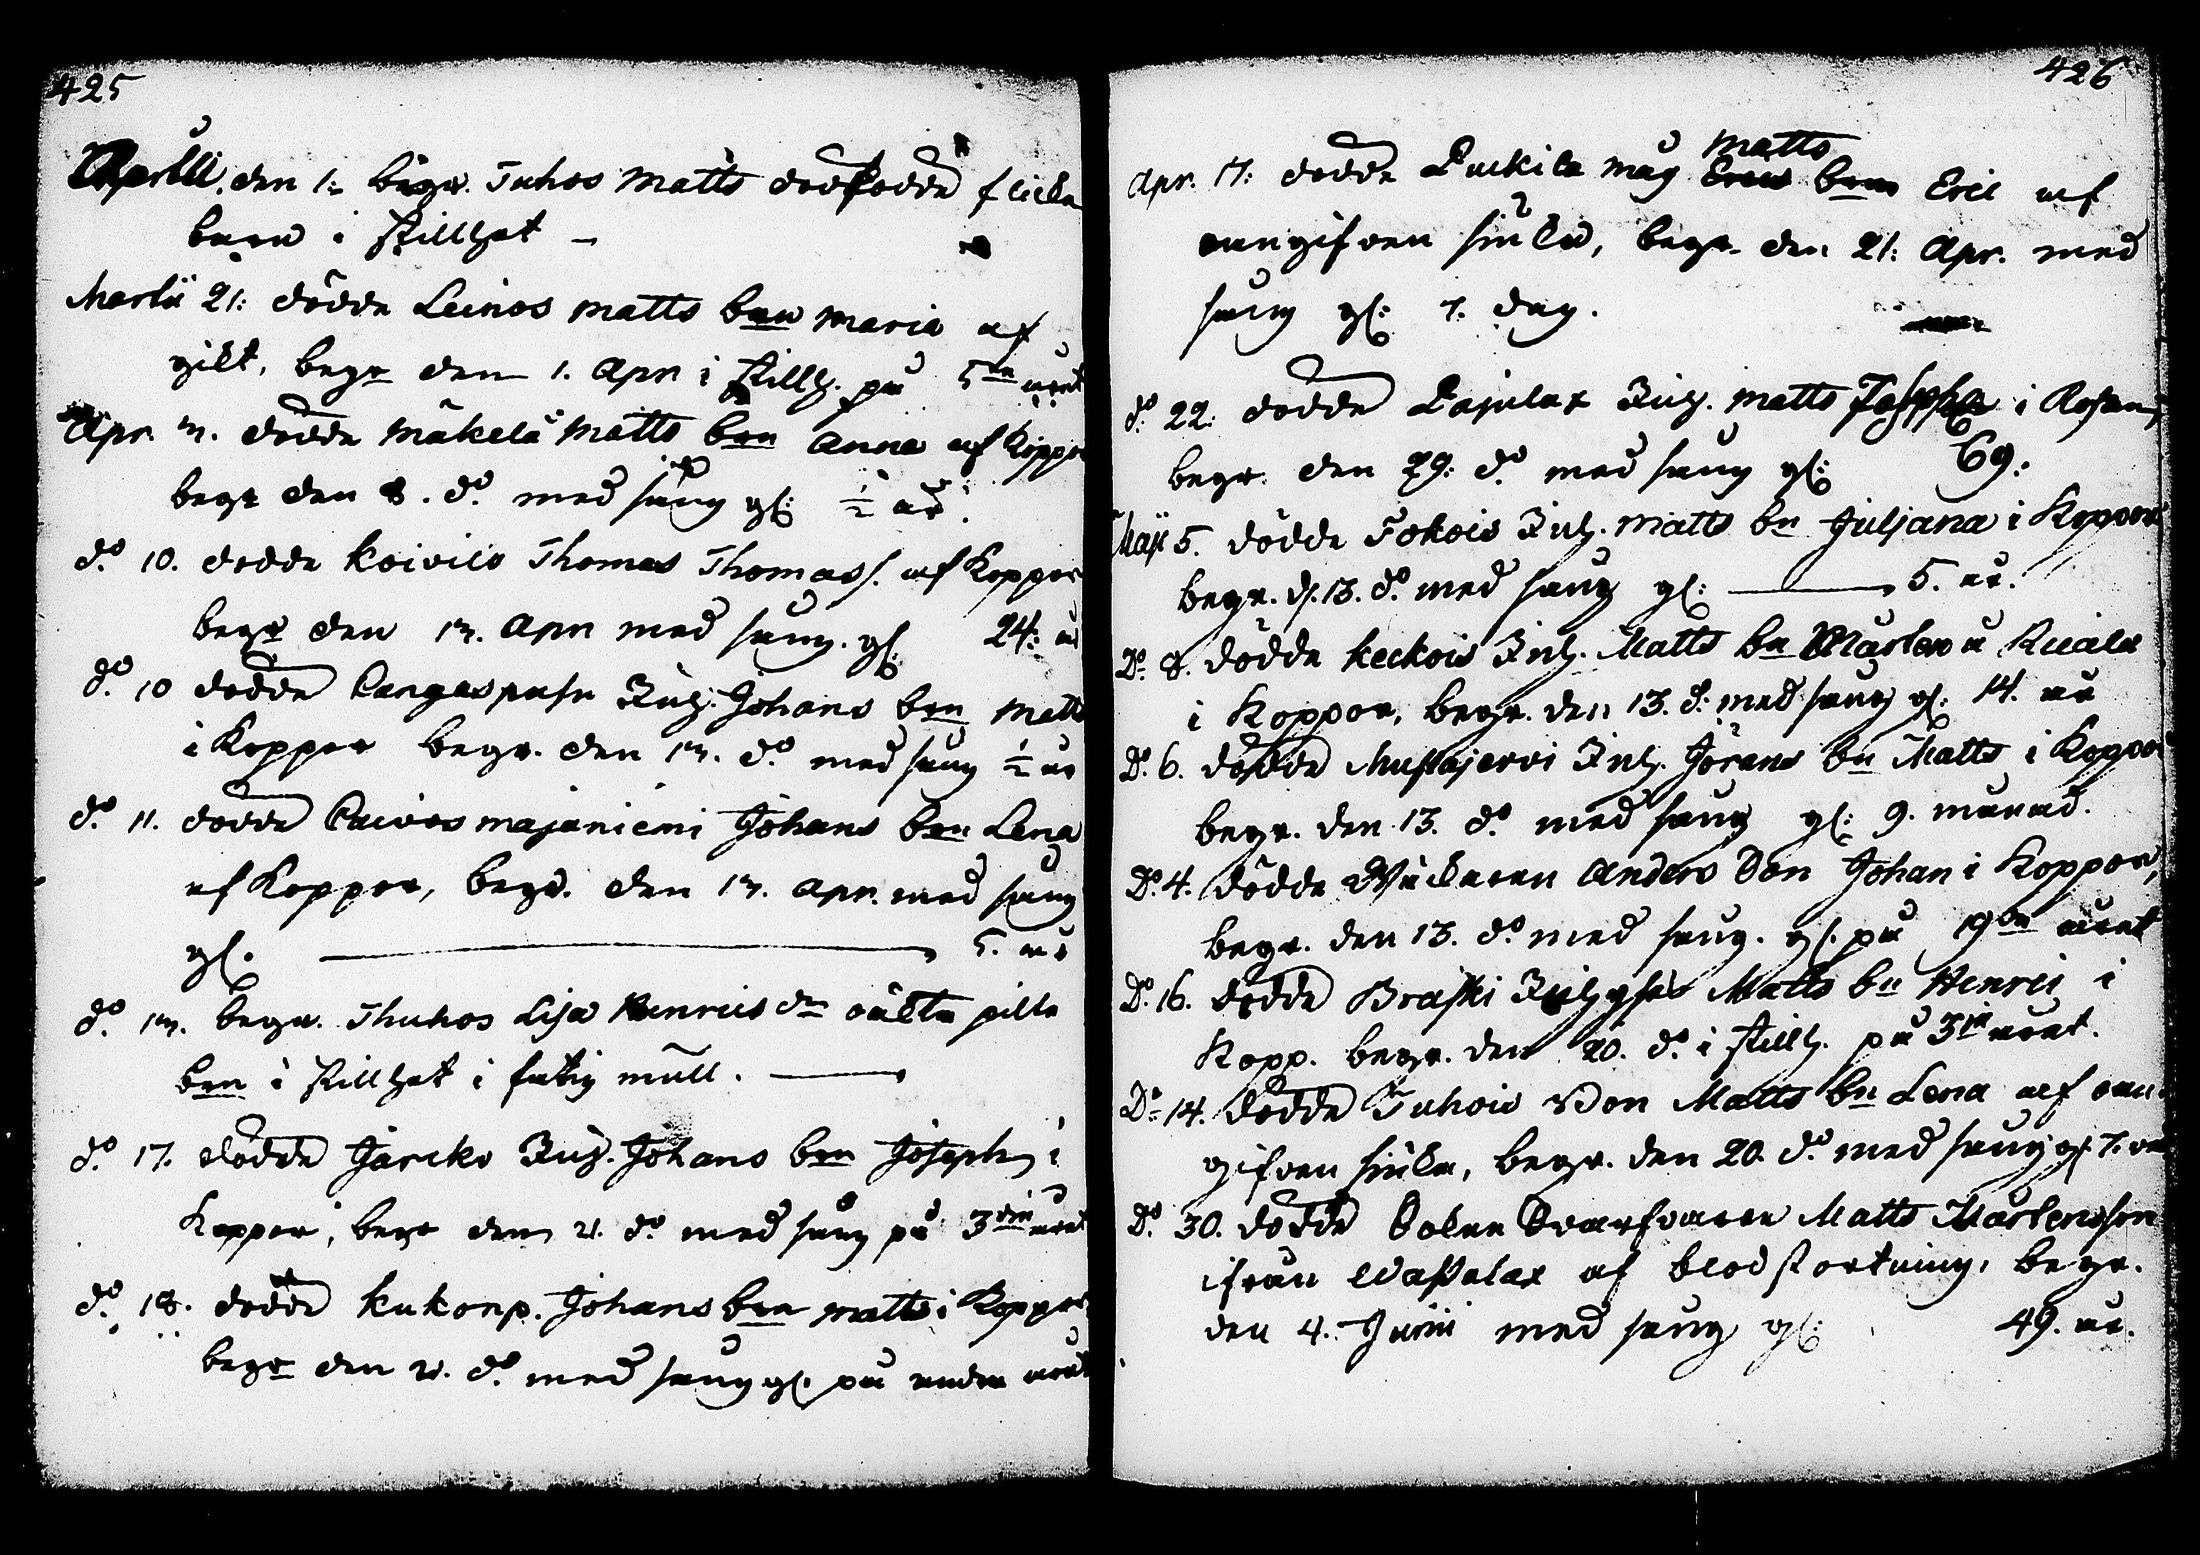 425
Aprilli den 1: begr. Juhos Matts dödfödde flicke
barn i stillhet –
Martii 21: dödde Leinos Matts brn Maria af
gikt, begr den 1. Apr. i stillh. på 5te året
Apr. 7. dödde Mäkelä Matts brn Anna af Koppor
begr den 8. do med sång gl: ½ år.
do. 10. dödde Koivilo Thomas Thomass. af Koppor
begr den 17. Apr med sång. gl: 24: år
do. 10 dödde Cangaspusu Inh. Johans brn Matts
i Koppor begr. den 17. do med sång ½ år
do. 11. dödde majaniemi Johans brn Lena
af Koppor, begr. den 17. Apr. med sång
gl. 5. år
do. 17. begr. Thuhos Lisa Henrics dr oäkta pilte
brn i stillhet i fatig mull.
do. 17. dödde Jarcko Inh. Johans brn Joseph i
Koppor, begr den 21. do med sång på 3die året
do. 18. dödde Kukonp. Johans brn Matts i Koppor
begr den 21. do. med sång gl. på andra året
426
Apr. 17: dödde Luckila måg Matts brn Eric af
oangifven siukd, begr den 21: Apr. med
sång gl: 7. dag.
do. 22: dödde Pajulax Inh. Matts i
begr. den 29: do med sång gl: 69:
Maji 5. dödde Fokois Inh. Matts bn Juljana i Koppor
begr. d. 13. do. med sång gl: 5. år.
Do. 8. dödde Keckois Inh. Matts bn Mårten å
i Koppor, begr. den 13. d: med sång gl: 14. år
Do. 6. dödde Mustajervi Inh. Jörans bn Matts i Koppor
begr. den 13. do. med sång gl: 9. månad.
Do. 4. dödde Anders Son Johan i Koppor,
begr. den 13. do med sång. gl. på 19de året
Do. 16. dödde Braski Inhyses Matts bn Henric i
Kopp. begr. den 20. do. i stillh. på 3die året.
Do 14. dödde Juhois Son Matts bn Lena af oan
gifven siukd, begr. den 20. do med sång gl. 7. år
Do. 30. dödde Matts Mårtensson
ifrån af blodstörtning, begr.
den 4. Junii med sång gl: 49. år.